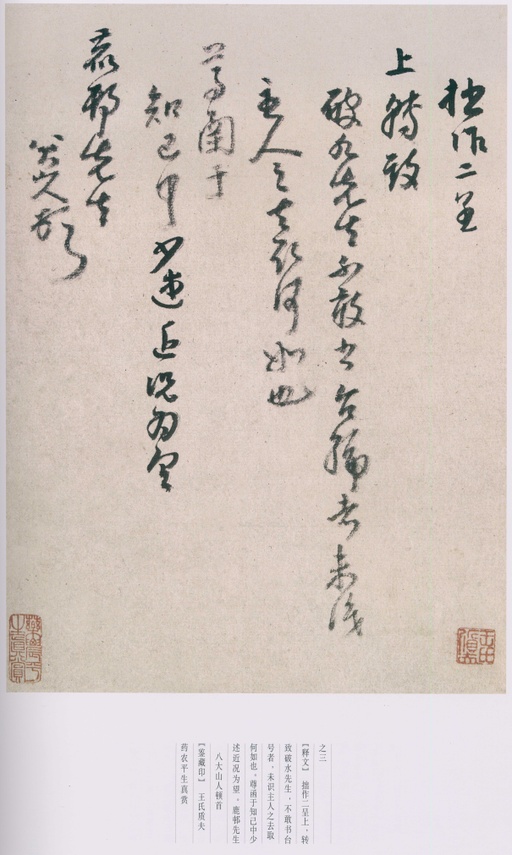 拙作二呈
上转致
破水先生不敢书台号者未识
主人之去取何如也
尊函于
知己中少述近况为望
鹿邨先生
八大山人顿首
之三
【释文】 拙作二呈上，转
致破水先生，不敢书台
号者，未识主人之去取
何如也。尊函于知己中少
述近况为望。鹿邨先生
八大山人顿首
【鉴藏印】 王氏质夫
药农平生真赏